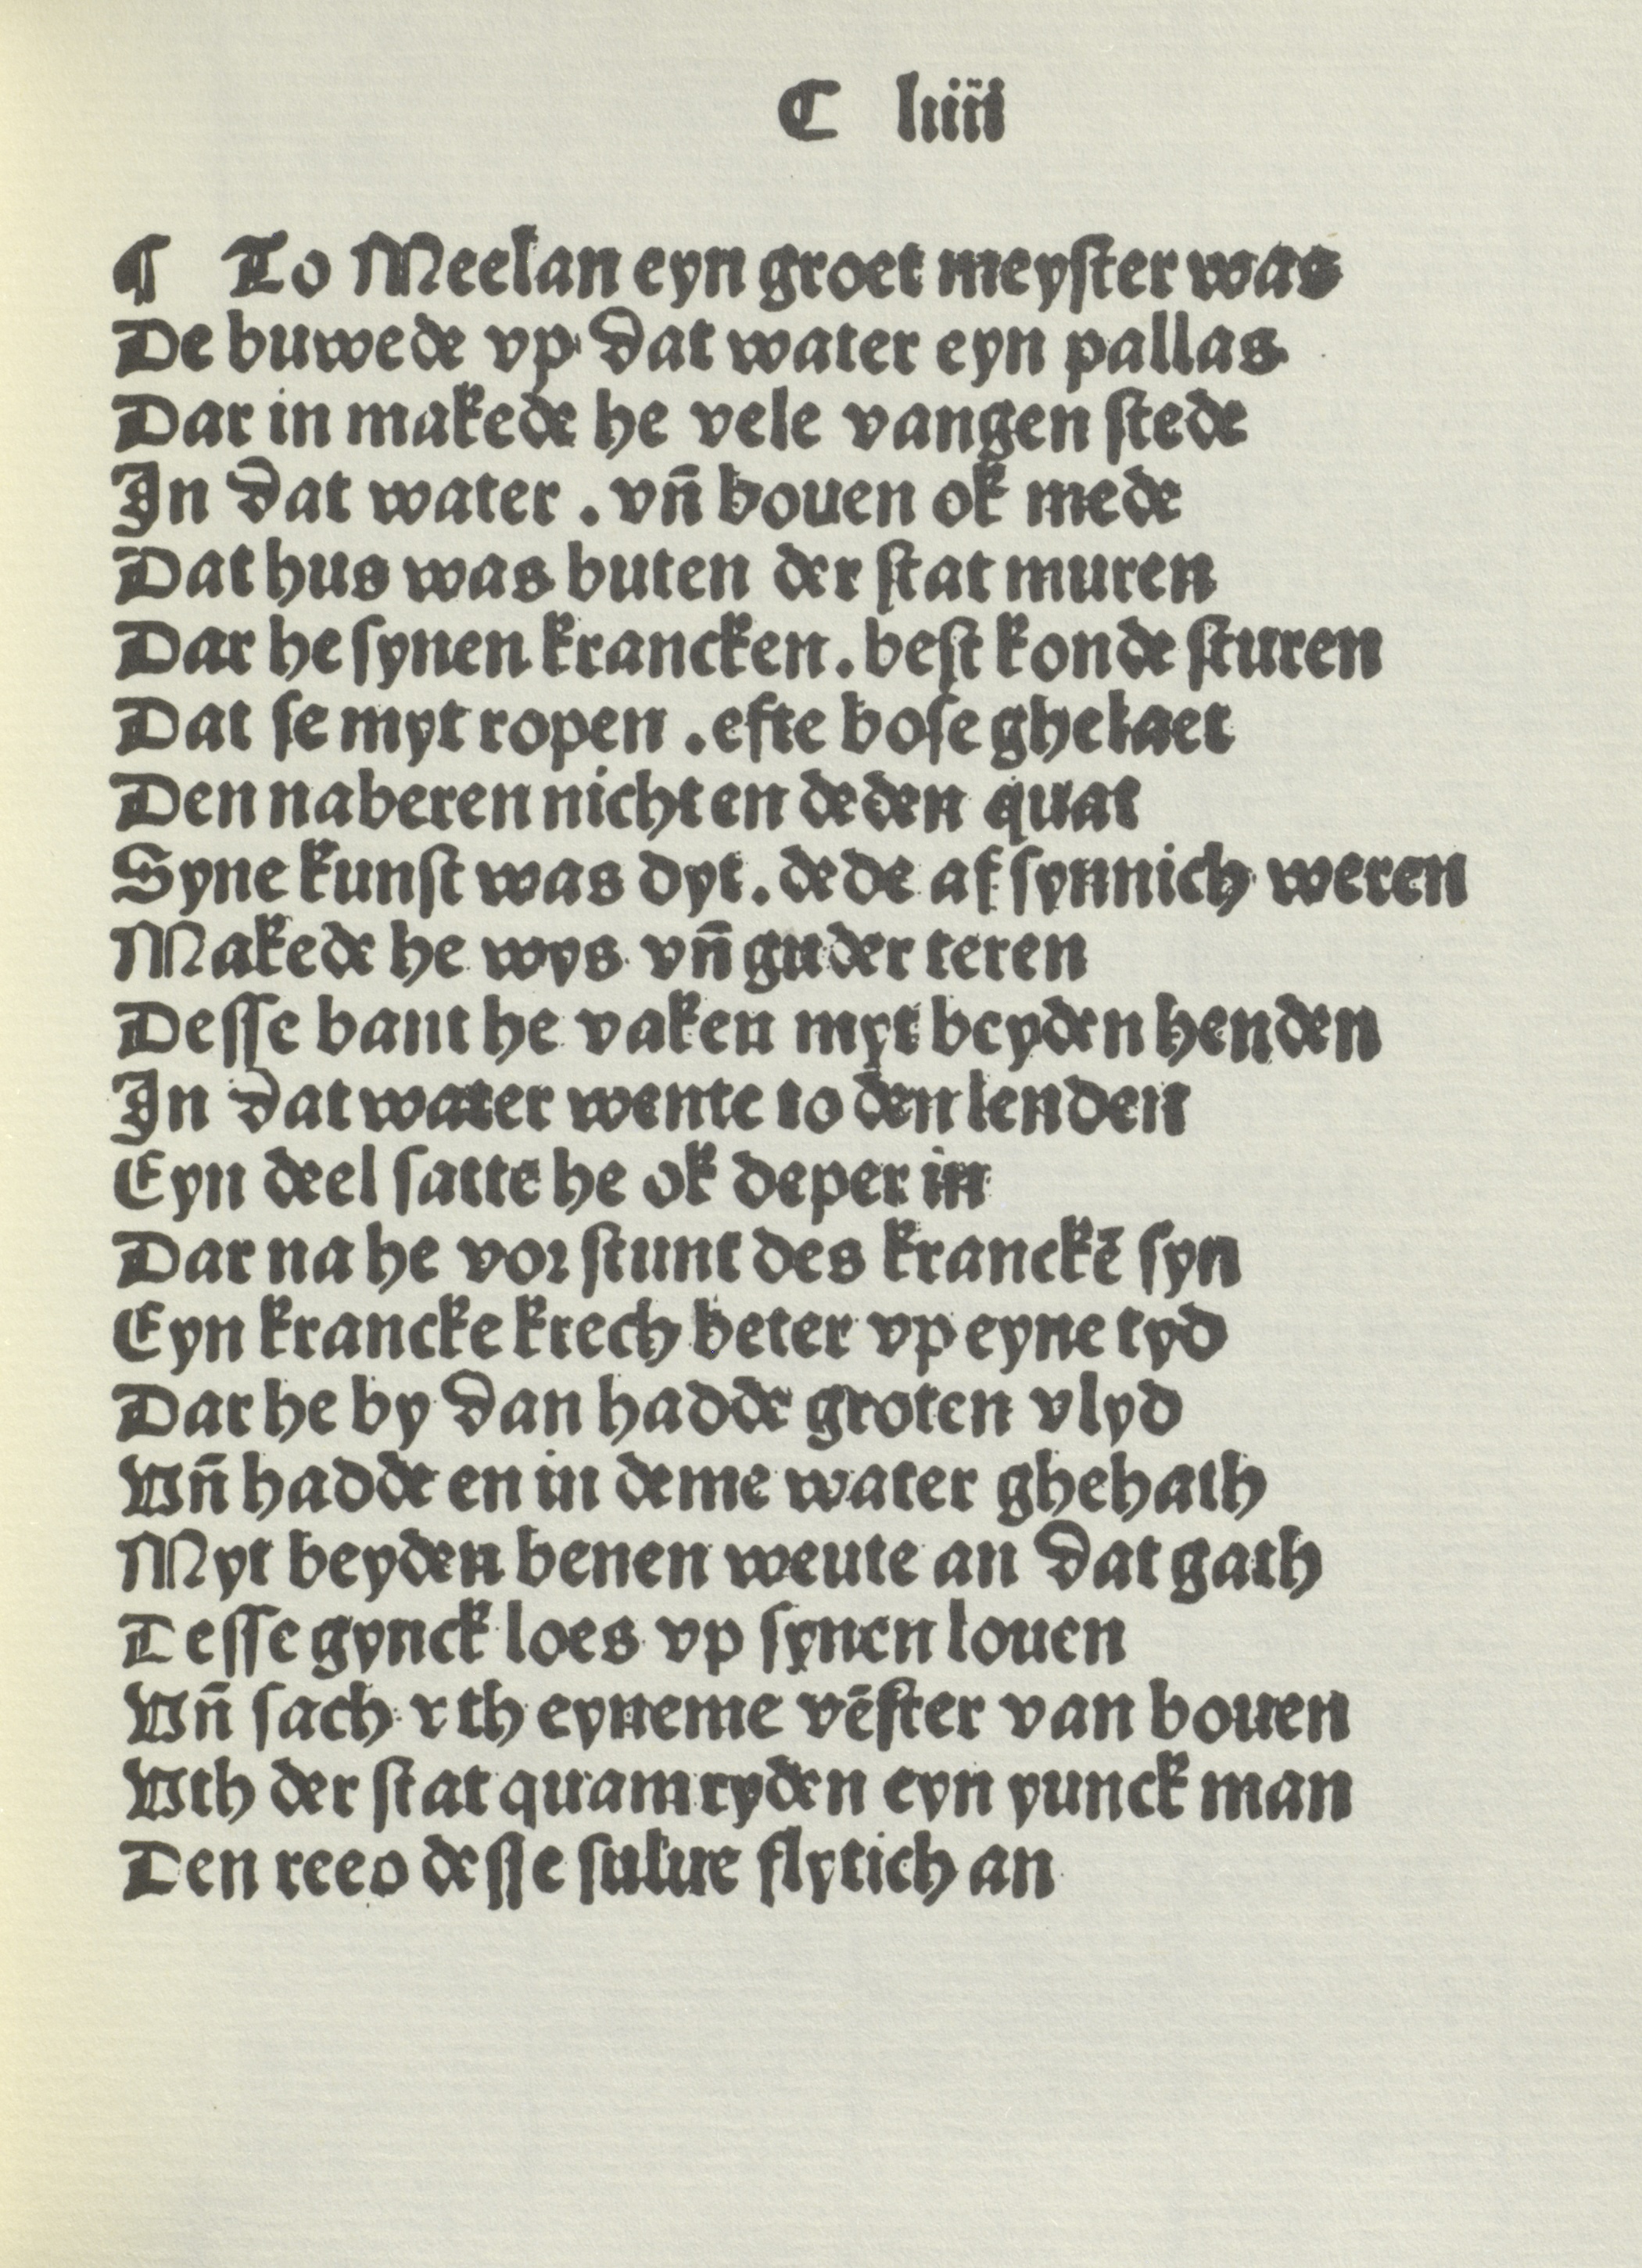 C liiii
¶ To Meelan eyn groet meyſter was
De buwede vp dat water eyn pallas
Dar in makede he vele vangen ſtede
In dat water . vn̄ bouen ok mede
Dat hus was buten der ſtat muren
Dar he ſynen krancken . beſt konde ſturen
Dat ſe myt ropen . efte boſe ghelaet
Den naberen nicht en deden quat
Syne kunſt was dyt . de de af ſynnich weren
Makede he wys vn̄ guder teren
Deſſe bant he vaken myt beyden henden
In dat water wente to den lenden
Eyn deel ſatte he ok deper in
Dar na he vor ſtunt des kranckē ſyn
Eyn krancke krech beter vp eyne tyd
Dar he by dan hadde groten vlyd
Vn̄ hadde en in deme water ghehath
Myt beyden benen weute an dat gath
Deſſe gynck loes vp ſynen louen
Vn̄ ſach vth eyneme vēſter van bouen
Vth der ſtat quam ryden eyn yunck man
Den reeo deſſe ſulue flytich an